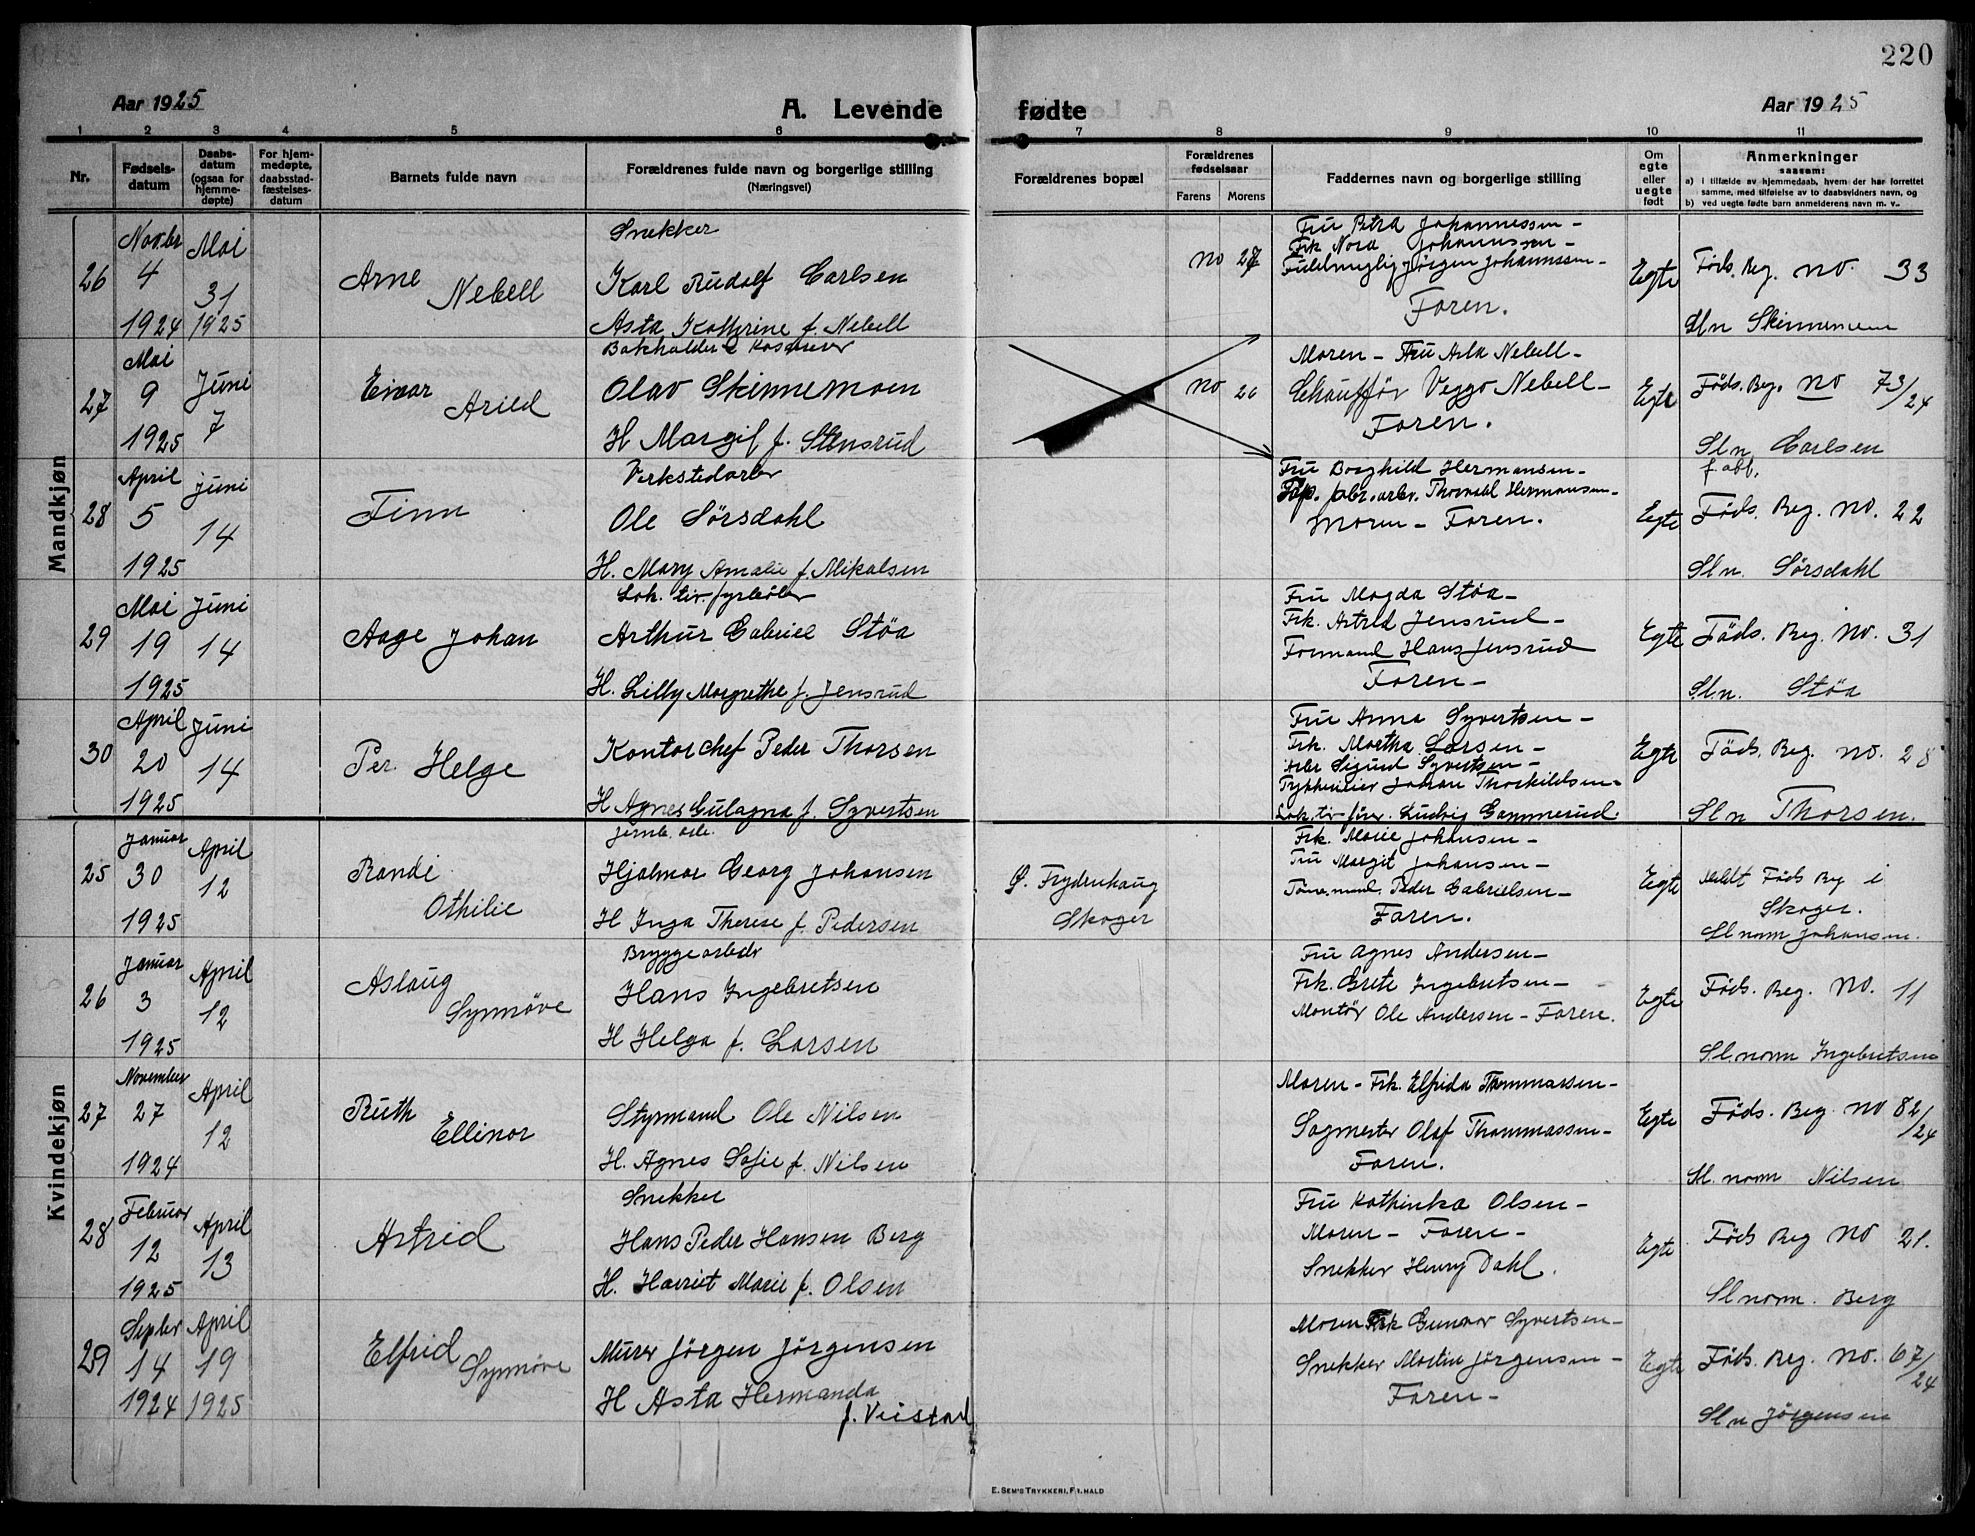 220
Aar 1925
A. Levende fødte
Aar 1925
1 2 3 4 5 6 7 8 9 10 11
Nr.
Fødsels-
datum
Daabs-
datum
(ogsaa for
hjemme-
døpte)
For hjem-
medøpte,
daabsstad-
fæstelses-
datum
Barnets fulde navn
Forældrenes fulde navn og borgerlige stilling
(Næringsvei)
Forældrenes bopæl
Forældrenes
fødselsaar
Farens Morens
Faddernes navn og borgerlige stilling
Om
egte
eller
uegte
født
Anmerkninger
saasom:
a) I tilfælde av hjemmedaab, hvem der har forrettet
samme, med tilføielse av to daabsvidners navn, og
b) ved uegte fødte barn anmelderens navn m. v.
Mandkjøn
26
Novbr
4
1924
Mai
31
1925
Arne
Nebell
Snekker
Karl Rudolf Carlsen
Asta Kathrine f. Nebell
no 27
Fru Petra Johannessen -
Frk Nora Johannssen -
Jørgen Johannssen -
Faren.
Egte
Føds. Reg. no. 33
Sln Skinnemoen
27
Mai
9
1925
Juni
7
Einar
Arild
Bokholder & Kasserer
Olav Skinnemoen
H Margit f. Stensrud
no 26
Moren - Fru Asta Nebell -
Chauffør Veggo Nebell -
Faren.
Egte
Føds. Reg. no 73/24
Sln Carlsen
28
April
5
1925
Juni
14
Finn
Verkstedarb
Ole Sørsdahl
H. Mary Amalie f. Mikalsen
Fru Borghild Hermansen -
Pap. fabr. arb. Thorvald Hermansen -
Moren - Faren.
Egte
f. abb.
Føds. Reg. no. 22
Sln. Sørsdahl
29
Mai
19
1925
Juni
14
Aage Johan
Lok. tiv. fyrbøter
Arthur Gabriel Støa
H. Lilly Margrethe f. Jensrud
Fru Magda Støa -
Frk. Astrid Jensrud -
Formand Hans Jensrud
Faren -
Egte
Føds. Reg. no. 31
Sln. Støa
30
April
20
1925
Juni
14
Per Helge
Kontorchef Peder Thorsen
H Agnes Gulagna f. Syvertsen
Fru Anna Syvertsen -
Frk. Martha Larsen -
Sigurd Syvertsen -
Johan Thorkildsen -
Lok. tiv. før. Ludvig Gammerud
Egte
Føds. Reg. no. 28
Sln Thorsen.
Kvindekjøn
25
Januar
30
1925
April
12
Randi
Othilie
Jernb. arb.
Hjalmar Georg Johansen
H Inga Therese f. Pedersen
Ø. Frydenhaug
Skoger
Frk. Marie Johansen -
Fru Margit Johansen -
Tømmerm. Peder Gabrielsen -
Faren.
Egte
Meldt Føds Reg i
Skoger.
Sl navn Johansen.
26
Januar
3
1925
April
12
Aslaug
Synnøve
Bryggearbeider
Hans Ingebretsen
H Helga f. Larsen
Fru Agnes Andersen -
Frk. Grete Ingebretsen -
Montør Ole Andersen - Faren.
Egte
Føds. Reg. no. 11
Sl. navn Ingebretsen
27
November
27
1924
April
12
Ruth
Ellinor
Styrmand Ole Nilsen
H. Agnes Sofie f. Nilsen
Moren - Frk. Elfrida Thommassen -
Sagmester Olaf Thommassen -
Faren.
Egte
Føds. Reg. no 82/24
Sl. navn Nilsen
28
Februar
12
1925
April
13
Astrid
Snekker
Hans Peder Hansen Berg
H. Harriet Marie f. Olsen
Fru Kathinka Olsen -
Moren - Faren -
Snekker Henry Dahl.
Egte
Føds Reg no 21.
Sl navn. Berg
29
Septbr
14
1924
April
19
1925
Elfrid
Synnøve
Murer Jørgen Jørgensen
H Asta Hermanda
f. Veistad
Moren Frk Gunvor Syvertsen -
Snekker Martin Jørgensen -
Faren -
Egte
Føds. Reg. no. 67/24
Sl n Jørgensen
E. SEM'S TRYKKERI, F.HALD